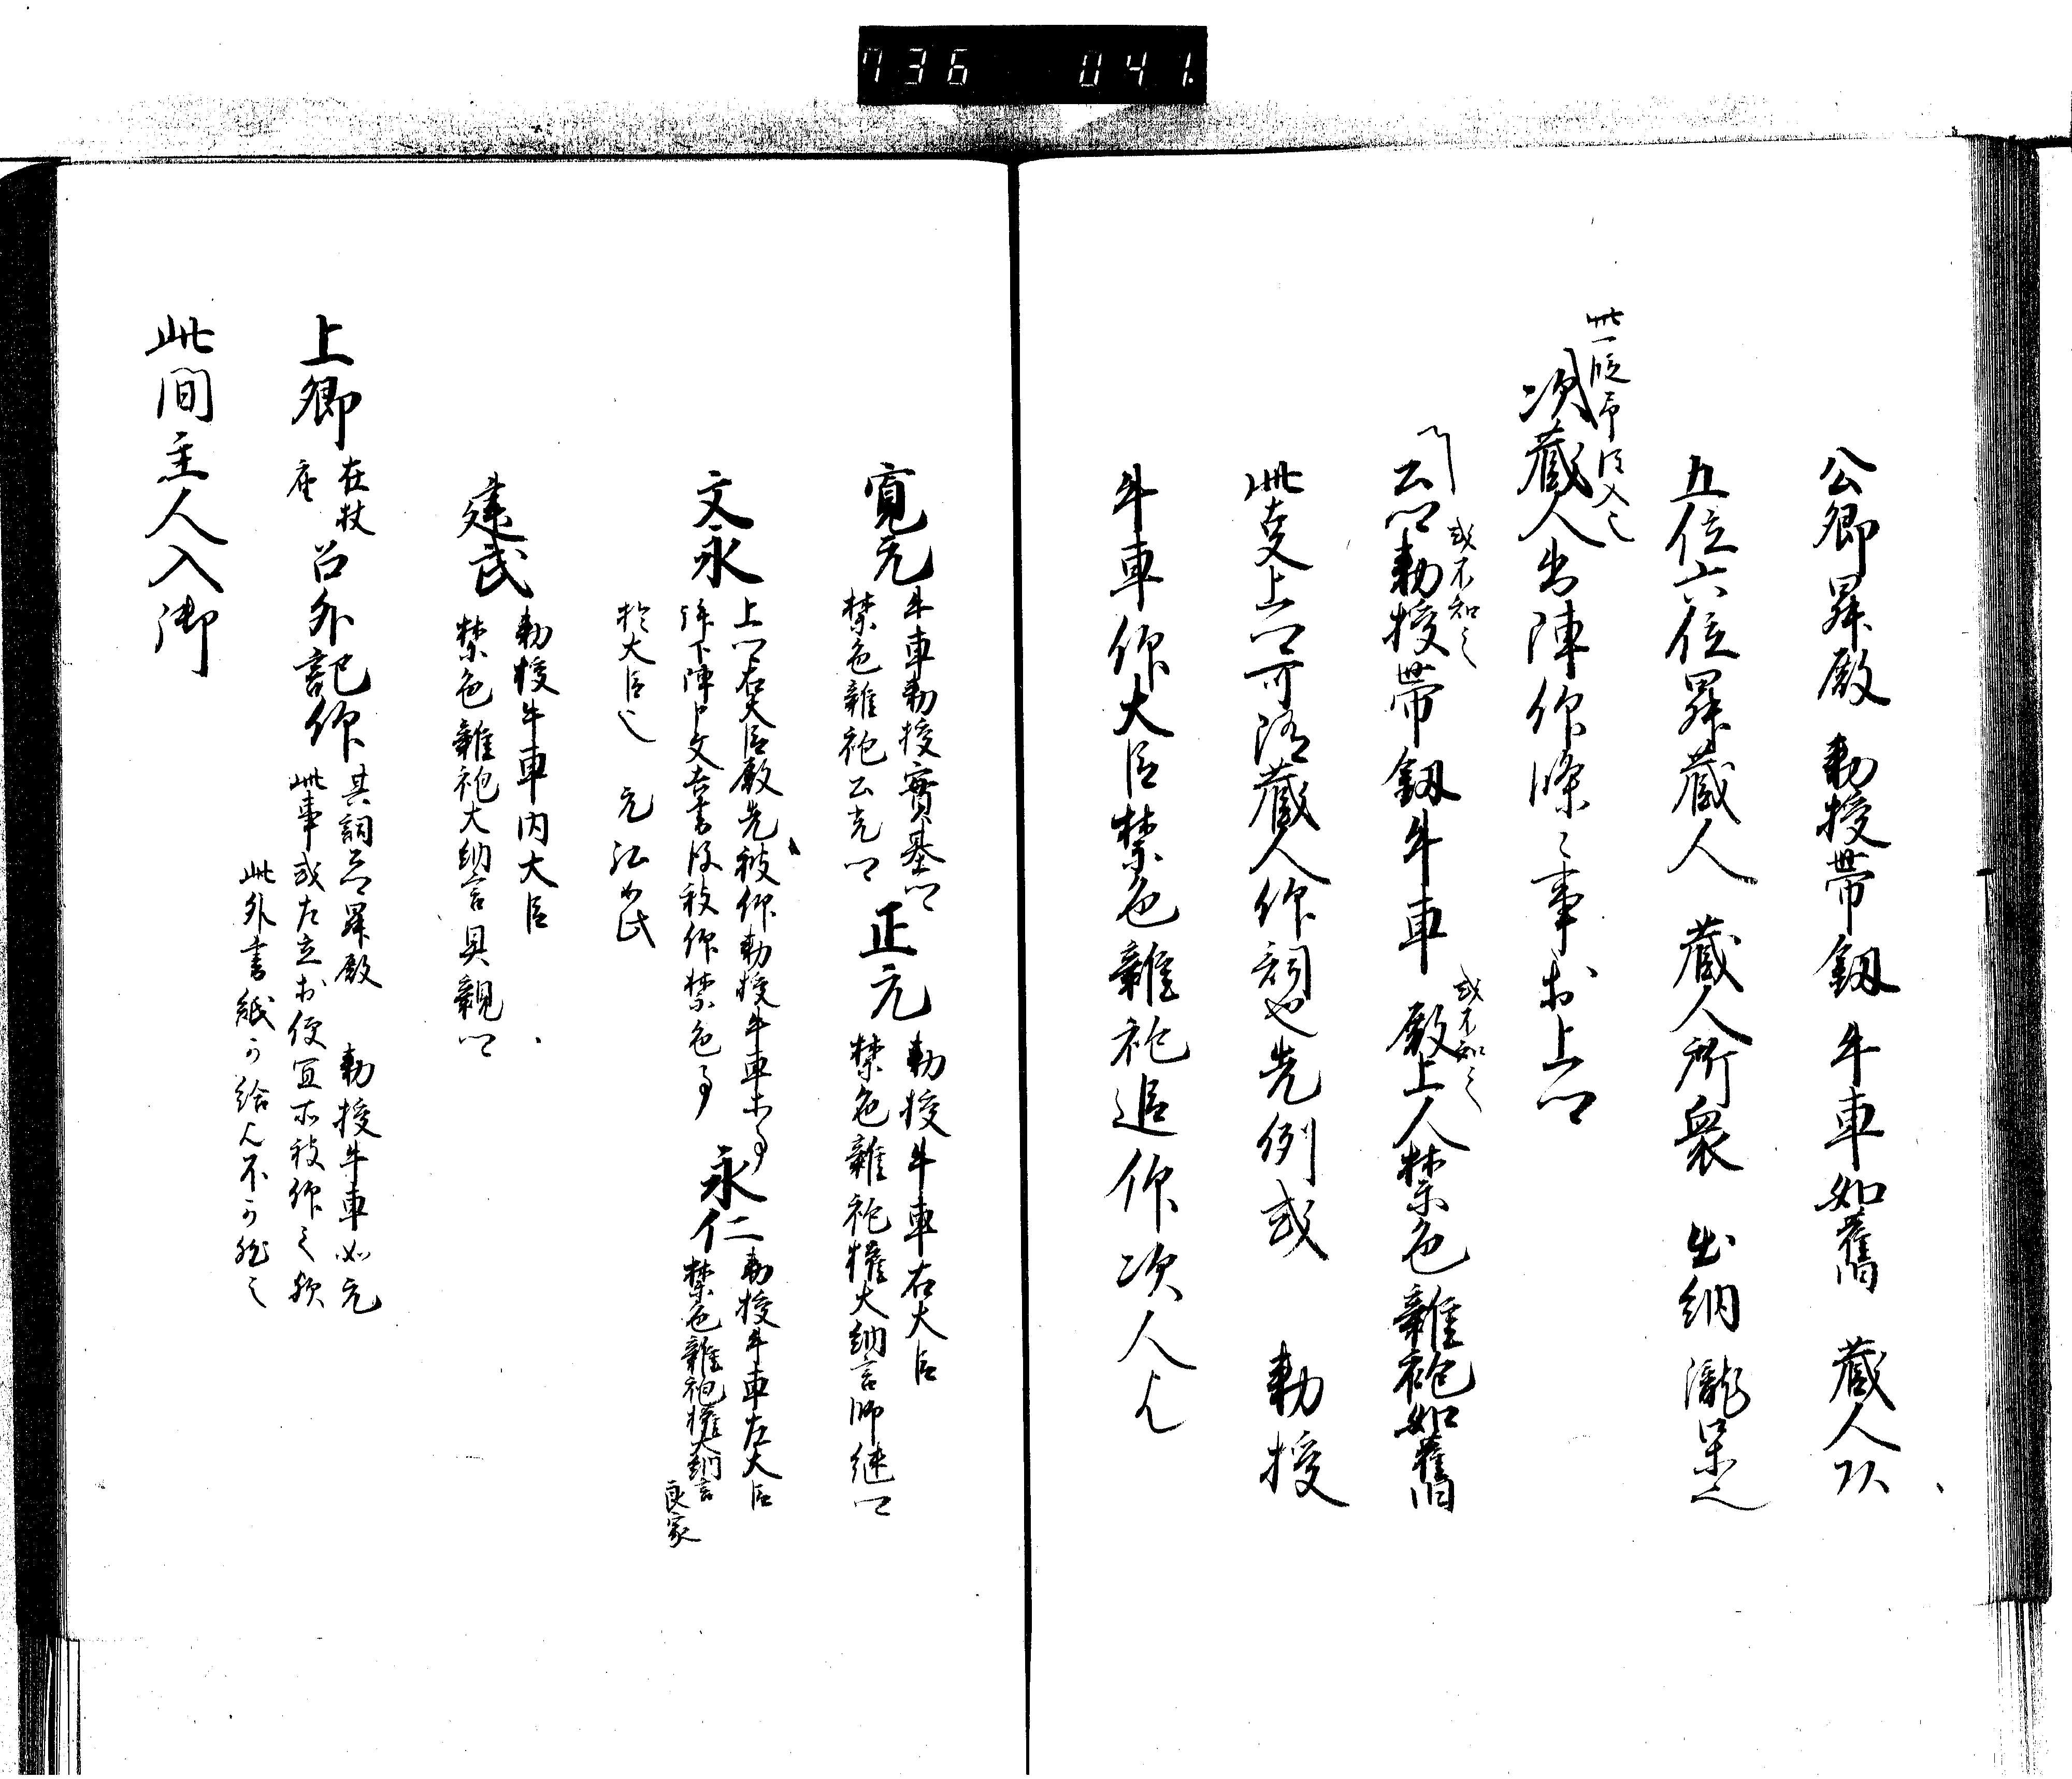 736 041.
公卿昇殿 勅授帯釼 牛車如舊 蔵人以
五位六位昇蔵人 蔵人所衆 出納 瀧口
次蔵人出陣仰條々事於上卿
或不知之
勅授帯釼牛車 殿上人禁色雑袍如舊
或不知之
此事上卿可 蔵人仰詞也先例或 勅授
牛車仰大臣禁色雑袍追仰次人
寛元
牛車勅授實基卿
禁色雑袍
正元
勅授牛車右大臣
禁色雑袍権大納言師継卿
文永
上卿右大臣殿先被仰勅授牛車
下陣 吉書後被仰禁色事
於大臣 元弘如此
永仁
勅授牛車左大臣
禁色雑袍権大納言
良家
建武
勅授牛車内大臣
禁色雑袍大納言具親卿
上卿
在杖
座
召外記仰
其詞 昇殿 勅授牛車如元
此事或 立 便宜所被仰之歟
此外書紙可給 不可然之
此間主人入御